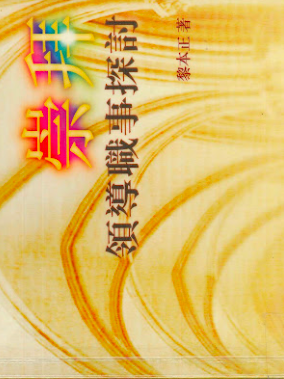 崇拜
領導職事探討
黎本正 著